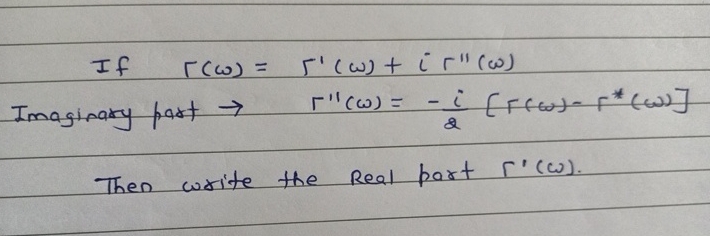 If Γ(ω) = Γ'(ω) + i Γ''(ω)
Imaginary part → Γ''(ω) = -i/2 [Γ(ω) - Γ*(ω)]
Then write the Real part Γ'(ω).